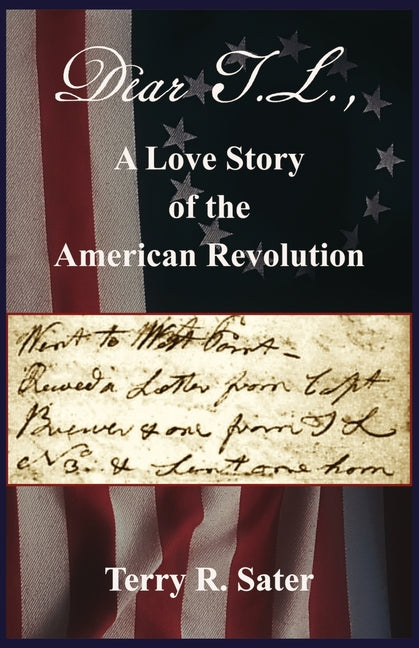 Dear T.L.,
A Love Story
of the
American Revolution
Went to West Point –
Recved a Letter from Capt
Brewer & one from T L
No 3. & Sent one hom
Terry R. Sater